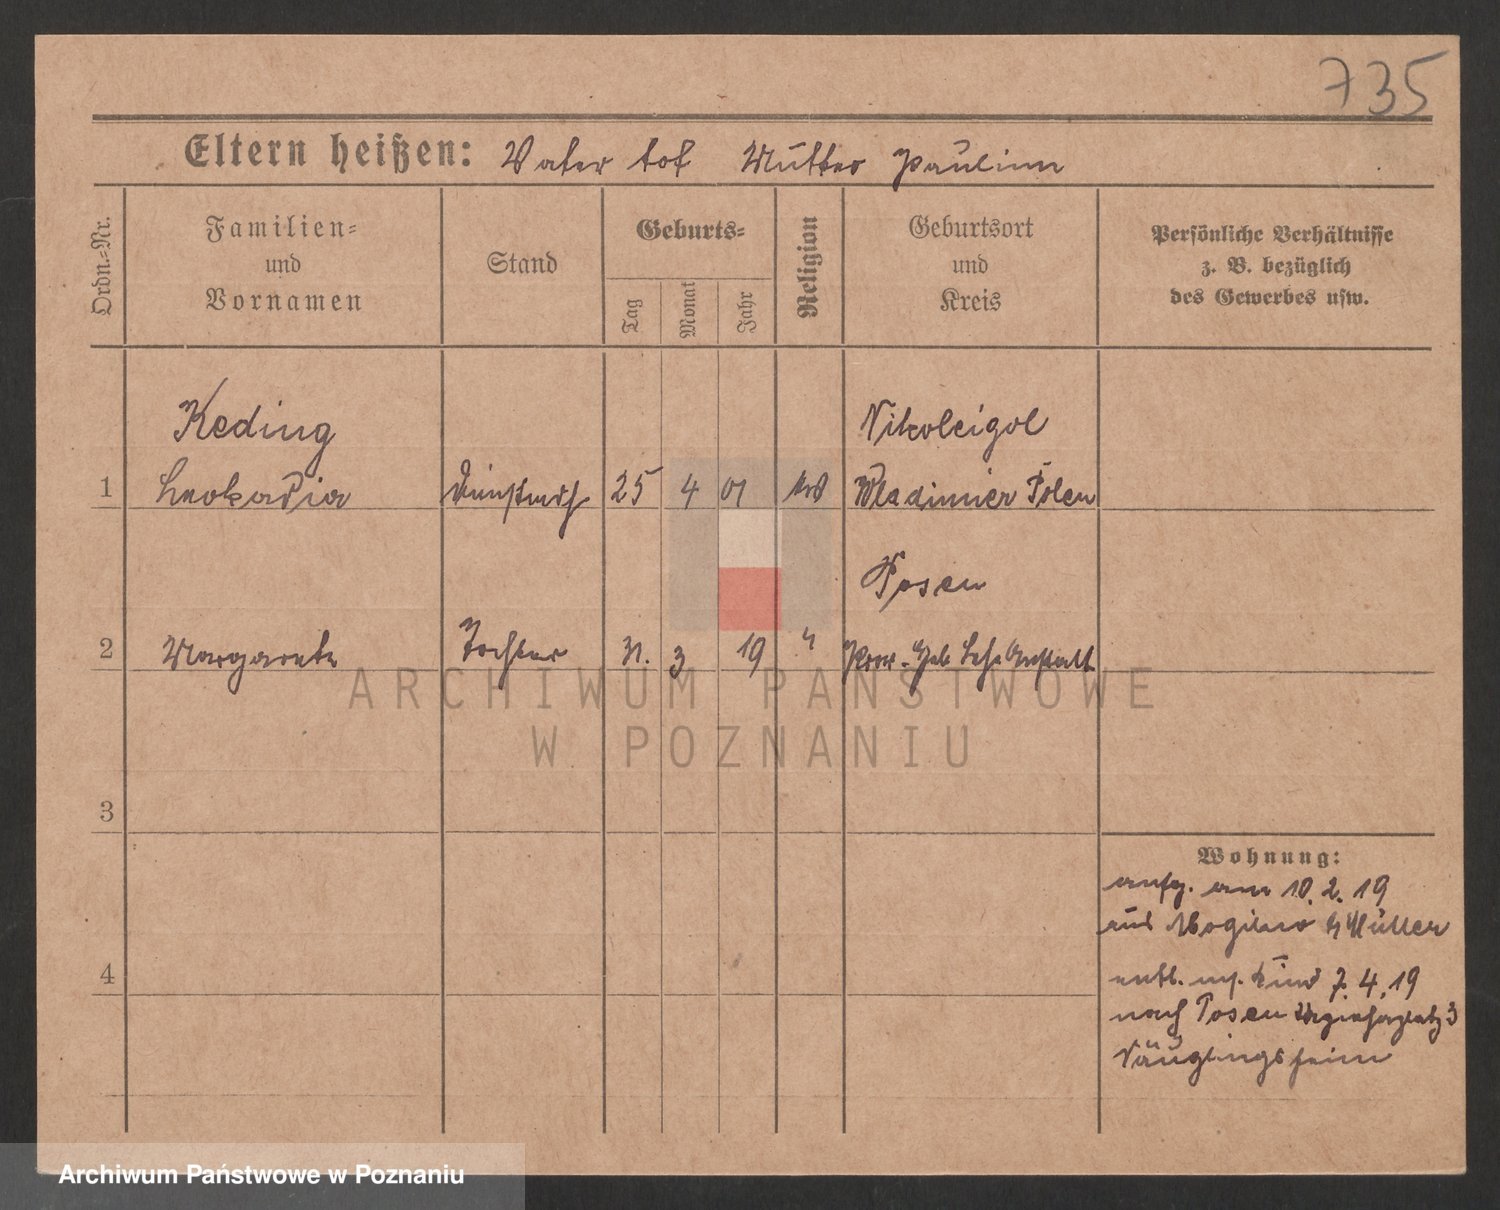 735
Eltern heißen: Vater tot Mutter Pauline
Ordn.-Nr.
Familien-
und
Vornamen
Stand
Geburts-
Tag
Monat
Jahr
Religion
Geburtsort
und
Kreis
Persönliche Verhältnisse
z. B. bezüglich
des Gewerbes usw.
Keding
1 Leokadia 25 4 01
Wladimier Polen
Posen
2 Margarete Tochter 31. 3 19 " Prov. Heb. Lehr Anstalt
3
4
Wohnung:
am 10.2.19
aus Mogilno b Müller
entl. m. Kind 7.4.19
nach Posen 3
Säuglingsheim
ARCHIWUM PAŃSTWOWE
W POZNANIU
Archiwum Państwowe w Poznaniu